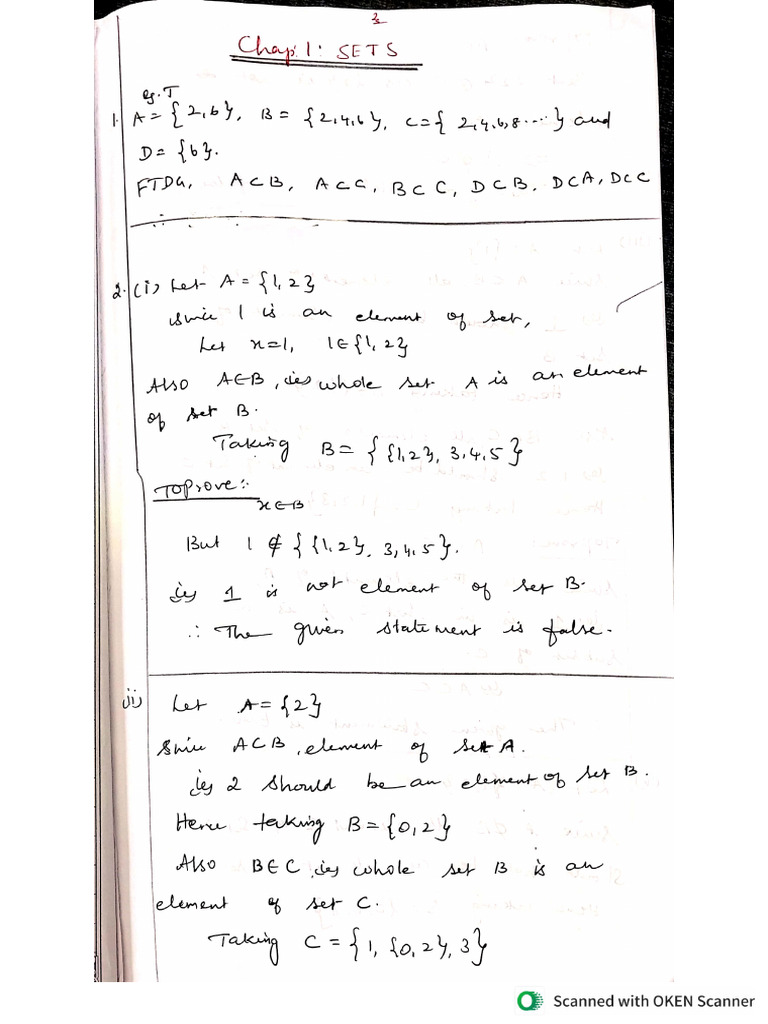 3
Chap. 1: SETS
eg. T
1. A = {2, 6}, B = {2, 4, 6}, C = {2, 4, 6, 8 ....} and
D = {6}.
FTDG, A⊂B, A⊂C, B⊂C, D⊂B, D⊂A, D⊂C
2. (i) Let A = {1, 2}
Since 1 is an element of set,
Let x=1, 1∈{1, 2}
Also A∈B, ie, whole set A is an element
of set B.
Taking B = {{1,2}, 3, 4, 5}
To Prove:
x∈B
But 1 ∉ {{1,2}, 3, 4, 5}.
ie, 1 is not element of set B.
∴ The given statement is false.
ii) Let A = {2}
Since A⊂B, element of set A.
ie, 2 should be an element of set B.
Hence taking B = {0, 2}
Also B∈C, ie, whole set B is an
element of set C.
Taking C = {1, {0, 2}, 3}
Scanned with OKEN Scanner